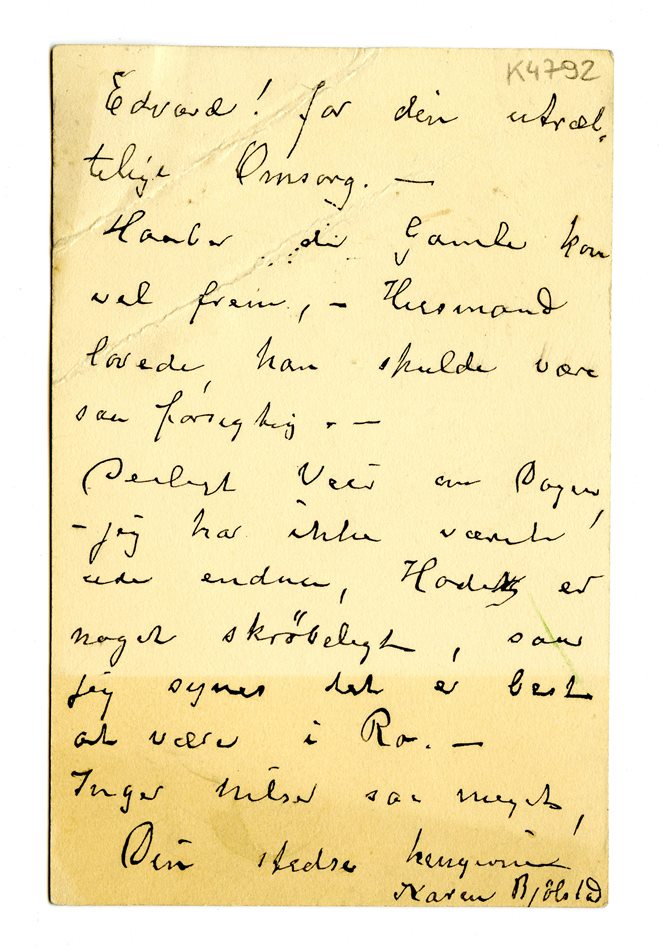 K4792
Edvard! for din utræt-
telige Omsorg. —
Haaber de Gamle kom
vel frem, - Husmand
lovede, han skulde være
saa forsigtig. —
Deiligt Veir om Dagen,
- jeg har ikke været
ude endnu, Hodet er
noget skröbeligt, saa
jeg synes det er best
at være i Ro. —
Inger hilser saa meget,
Din stedse hengivne
Karen Bjölstad